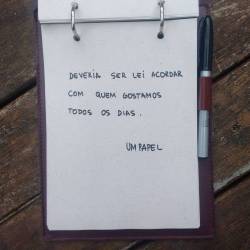 DEVERIA SER LEI ACORDAR
COM QUEM GOSTAMOS
TODOS OS DIAS.
UM PAPEL